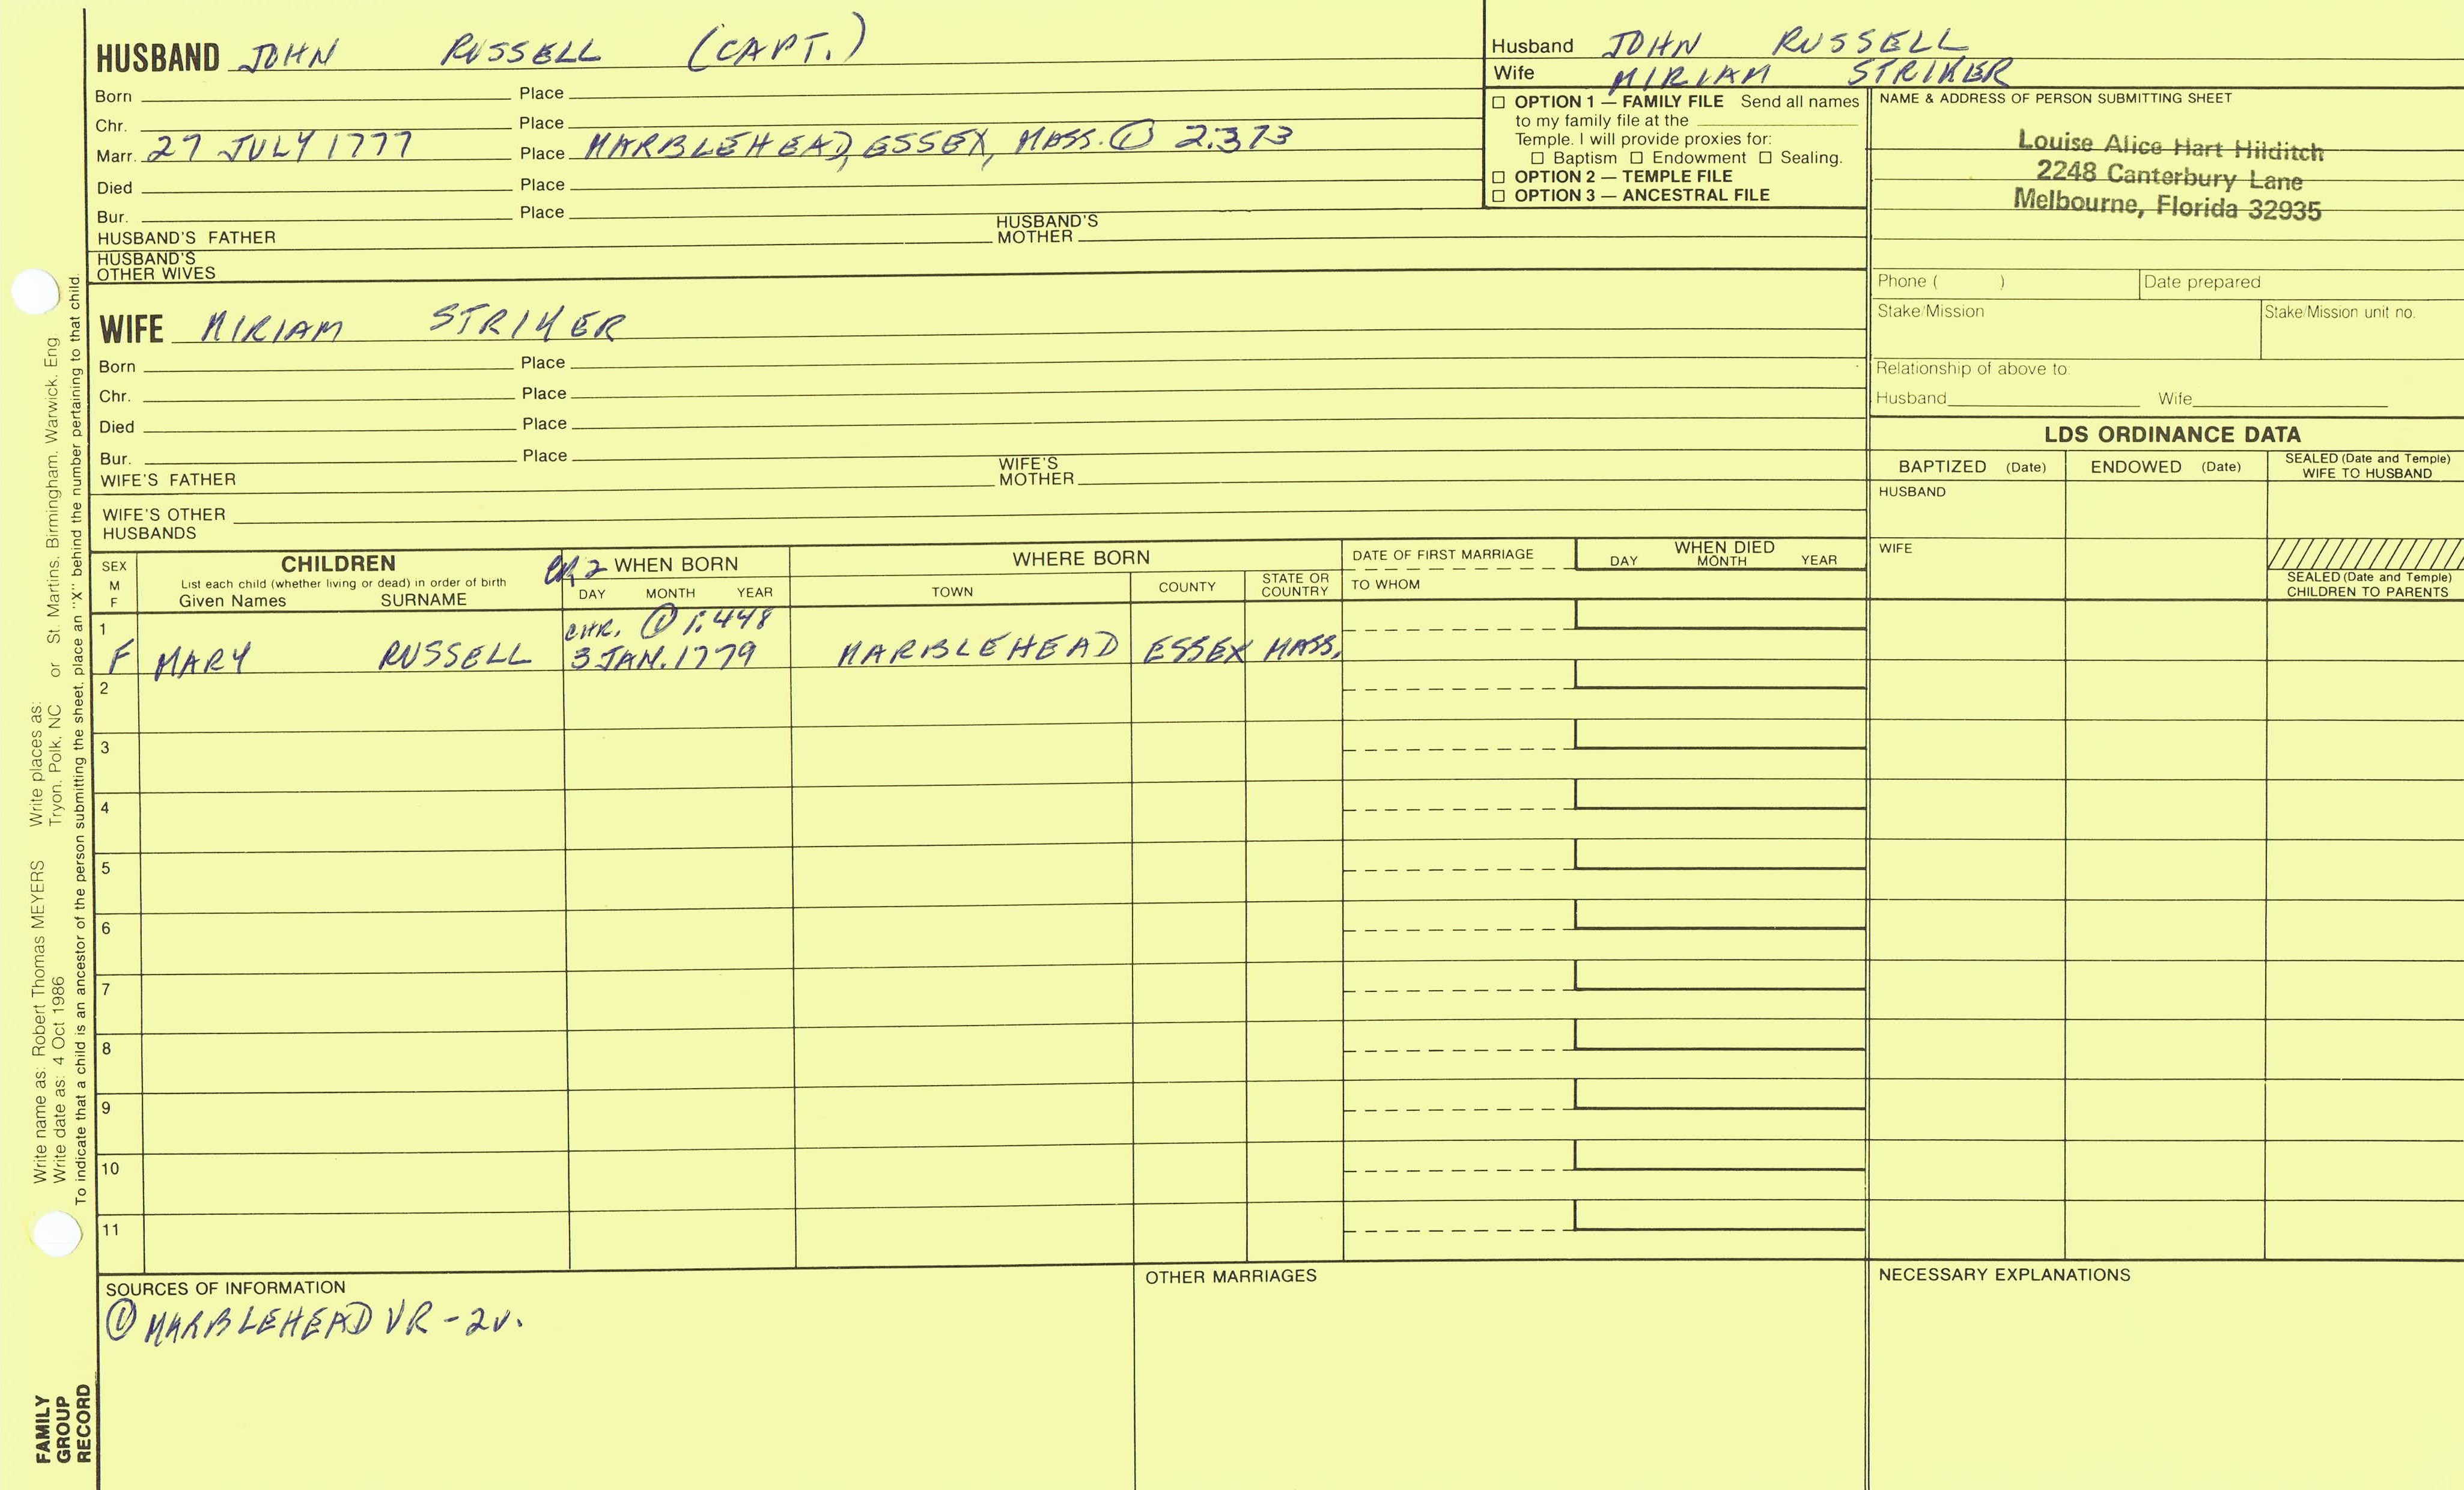 HUSBAND JOHN RUSSELL (CAPT.)
Born Place
Chr. Place
Marr. 27 JULY 1777 Place MARBLEHEAD, ESSEX, MASS. ① 2:373
Died Place
Bur. Place
HUSBAND'S FATHER HUSBAND'S MOTHER
HUSBAND'S OTHER WIVES
Husband JOHN RUSSELL
Wife MIRIAM STRIKER
☐ OPTION 1 — FAMILY FILE Send all names
to my family file at the
Temple. I will provide proxies for:
☐ Baptism ☐ Endowment ☐ Sealing.
☐ OPTION 2 — TEMPLE FILE
☐ OPTION 3 — ANCESTRAL FILE
NAME & ADDRESS OF PERSON SUBMITTING SHEET
Louise Alice Hart Hilditch
2248 Canterbury Lane
Melbourne, Florida 32935
Phone ( ) Date prepared
Stake/Mission Stake/Mission unit no.
Relationship of above to:
Husband Wife
WIFE MIRIAM STRIKER
Born Place
Chr. Place
Died Place
Bur. Place
WIFE'S FATHER WIFE'S MOTHER
WIFE'S OTHER
HUSBANDS
LDS ORDINANCE DATA
BAPTIZED (Date) ENDOWED (Date) SEALED (Date and Temple) WIFE TO HUSBAND
HUSBAND
WIFE
SEALED (Date and Temple)
CHILDREN TO PARENTS
SEX
M
F
CHILDREN
List each child (whether living or dead) in order of birth
Given Names SURNAME
CR2 WHEN BORN
DAY MONTH YEAR
WHERE BORN
TOWN COUNTY STATE OR COUNTRY
DATE OF FIRST MARRIAGE
TO WHOM
WHEN DIED
DAY MONTH YEAR
1 CHR. ① 1:448
F MARY RUSSELL 3 JAN. 1779 MARBLEHEAD ESSEX MASS.
2
3
4
5
6
7
8
9
10
11
SOURCES OF INFORMATION
① MARBLEHEAD VR - 2v.
OTHER MARRIAGES
NECESSARY EXPLANATIONS
Write name as: Robert Thomas MEYERS Write places as: 
Write date as: 4 Oct 1986 Tryon, Polk, NC or St. Martins, Birmingham, Warwick, Eng
To indicate that a child is an ancestor of the person submitting the sheet, place an "X" behind the number pertaining to that child.
FAMILY
GROUP
RECORD